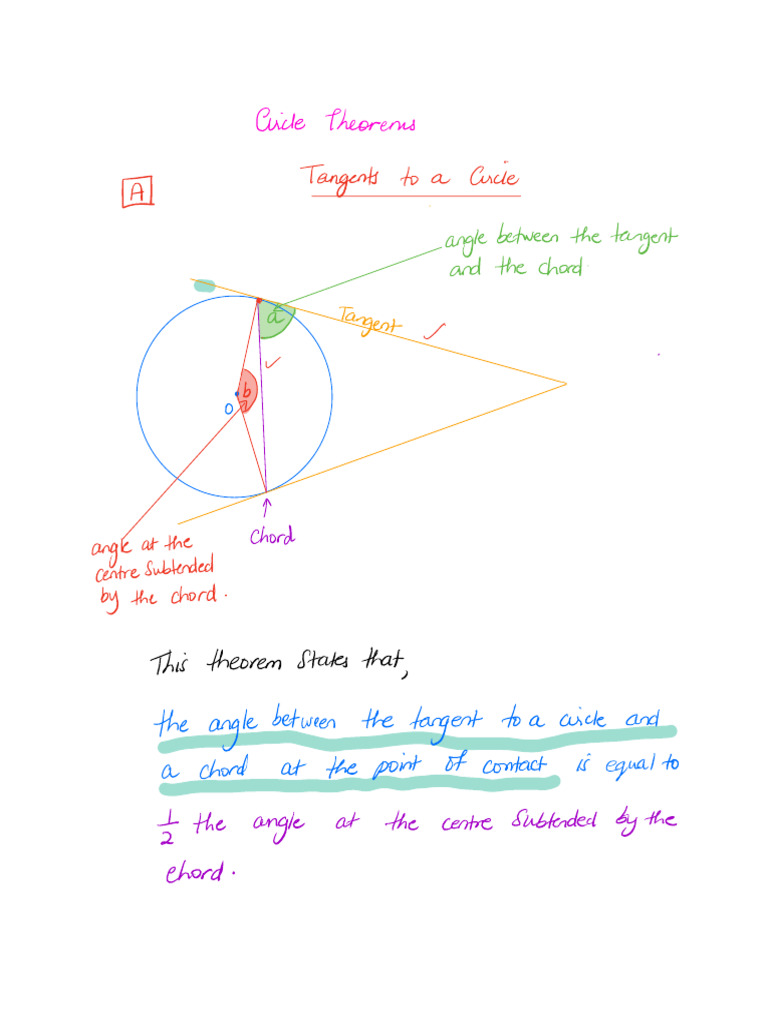 Circle Theorems
A
Tangents to a Circle
angle between the tangent
and the chord.
a
Tangent
b
O
chord
angle at the
centre subtended
by the chord.
This theorem states that,
the angle between the tangent to a circle and
a chord at the point of contact is equal to
1/2 the angle at the centre subtended by the
chord.